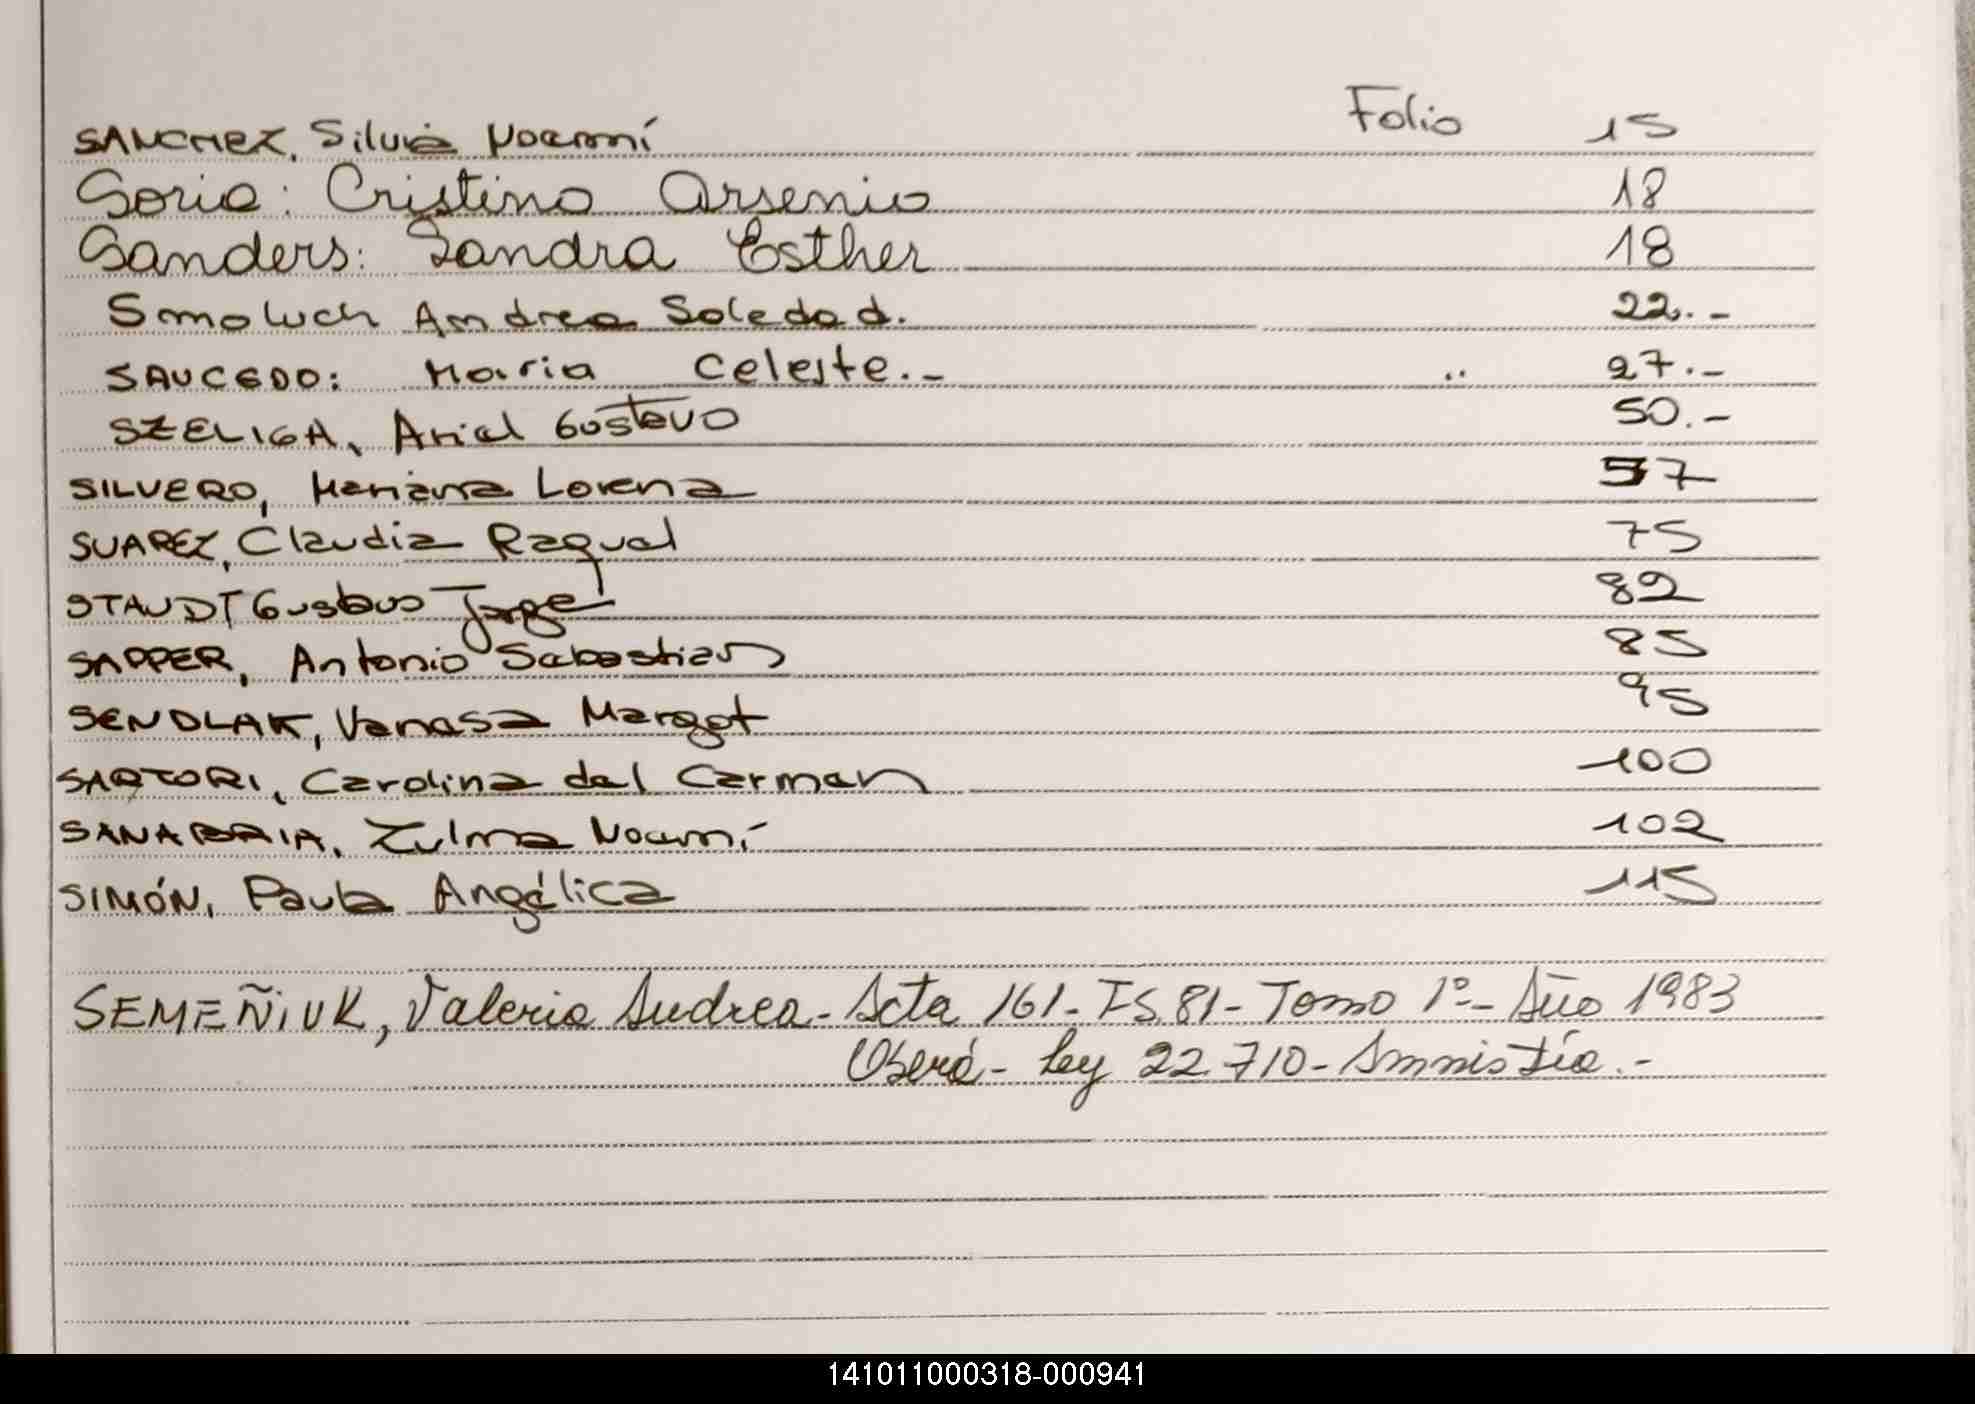 SANCHEZ, Silvia Noemí Folio 15
Soria: Cristino Arsenio 18
Sanders: Sandra Esther 18
Smoluch Andrea Soledad. 22.-
SAUCEDO: Maria Celeste.- " 27.-
SZELIGA, Ariel Gustavo 50.-
SILVERO, Mariana Lorena 57
SUAREZ, Claudia Raquel 75
STAUDT Gustavo Jorge 82
SAPPER, Antonio Sebastian 85
SENDLAK, Vanesa Margot 95
SARTORI, Carolina del Carmen 100
SANABRIA, Zulma Noemí 102
SIMÓN, Paula Angélica 115
SEMEÑIUK, Valeria Andrea - Acta 161 - FS.81 - Tomo 1º - Año 1983
Oberá - Ley 22.710 - Amnistía.-
141011000318-000941